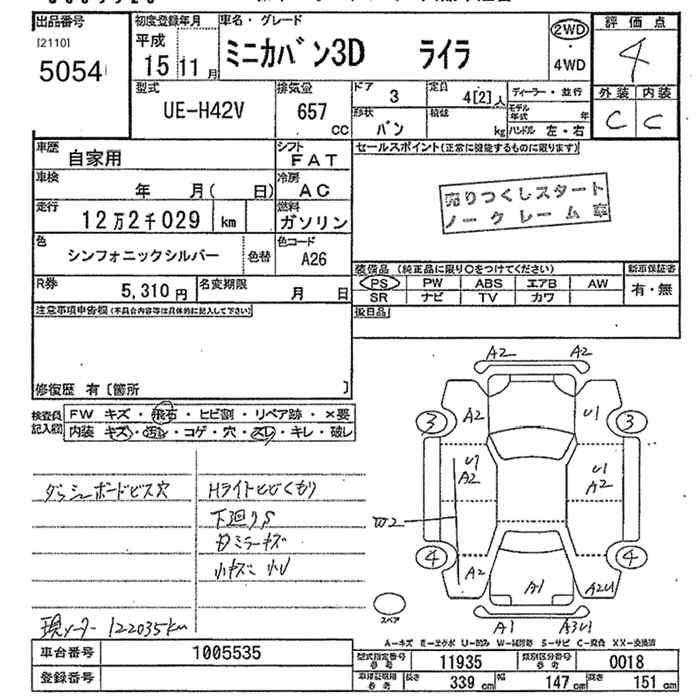 出品番号
[2110]
5054
初度登録年月
平成
15 11月
車名・グレード
ミニカバン3D ライラ
2WD
・
4WD
評価点
4
外装 内装
C C
型式
UE-H42V
排気量
657
cc
ドア
3
定員
4[2]人
形状
バン
積載
kg
ディーラー・並行
モデル年式 年
ハンドル 左・右
車歴
自家用
シフト
FAT
車検
年 月( 日)
冷房
AC
走行
12万2千029 km
燃料
ガソリン
色
シンフォニックシルバー
色替
色コード
A26
R券
5,310円
名変期限
月 日
セールスポイント(正常に機能するものに限ります)
売りつくしスタート
ノークレーム車
装備品 (純正品に限り○をつけてください)
PS PW ABS エアB AW
SR ナビ TV カワ
新車保証書
有・無
注意事項申告欄(不具合内容等は具体的に記入して下さい)
扱日品
修復歴 有〔箇所 〕
検査員
記入欄
FW キズ・飛石・ヒビ割・リペア跡・×要
内装 キズ・汚レ・コゲ・穴・スレ・キレ・破レ
ダッシュボードビス穴
Hライトヒビくもり
下廻りS
ミラーキズ
小キズ 小U
現メーター 122035km
A2 A2
A2 U1
3 3
U1
A2
U1
A2
W2
4 4
A2 A1 A2U1
A1 A3U1
スペア
A-キズ ミ-エクボ U-凹み W-補修跡 S-サビ C-腐食 XX-交換済
車台番号
1005535
登録番号
型式指定番号
参考
11935
類別区分番号
参考
0018
車検証数用
参考
長さ
339 cm
幅
147 cm
高さ
151 cm